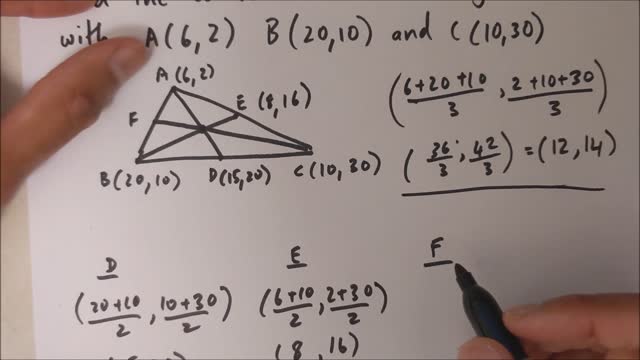 with A(6,2) B(20,10) and C(10,30)
A(6,2)
E (8,16)
F
B(20,10)
D(15,20)
C(10,30)
(6+20+10/3, 2+10+30/3)
(36/3, 42/3) = (12,14)
D
(20+10/2, 10+30/2)
E
(6+10/2, 2+30/2)
(8, 16)
F